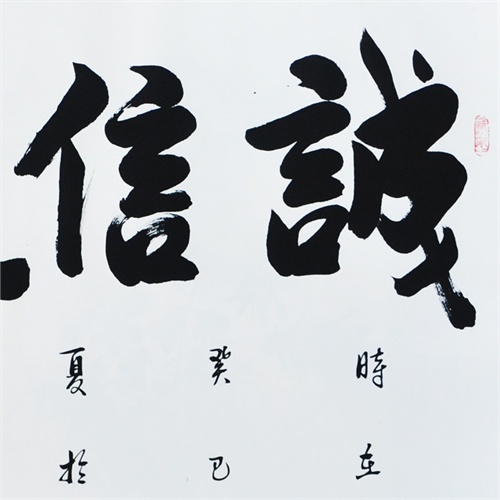 誠信
時在
癸巳
夏於